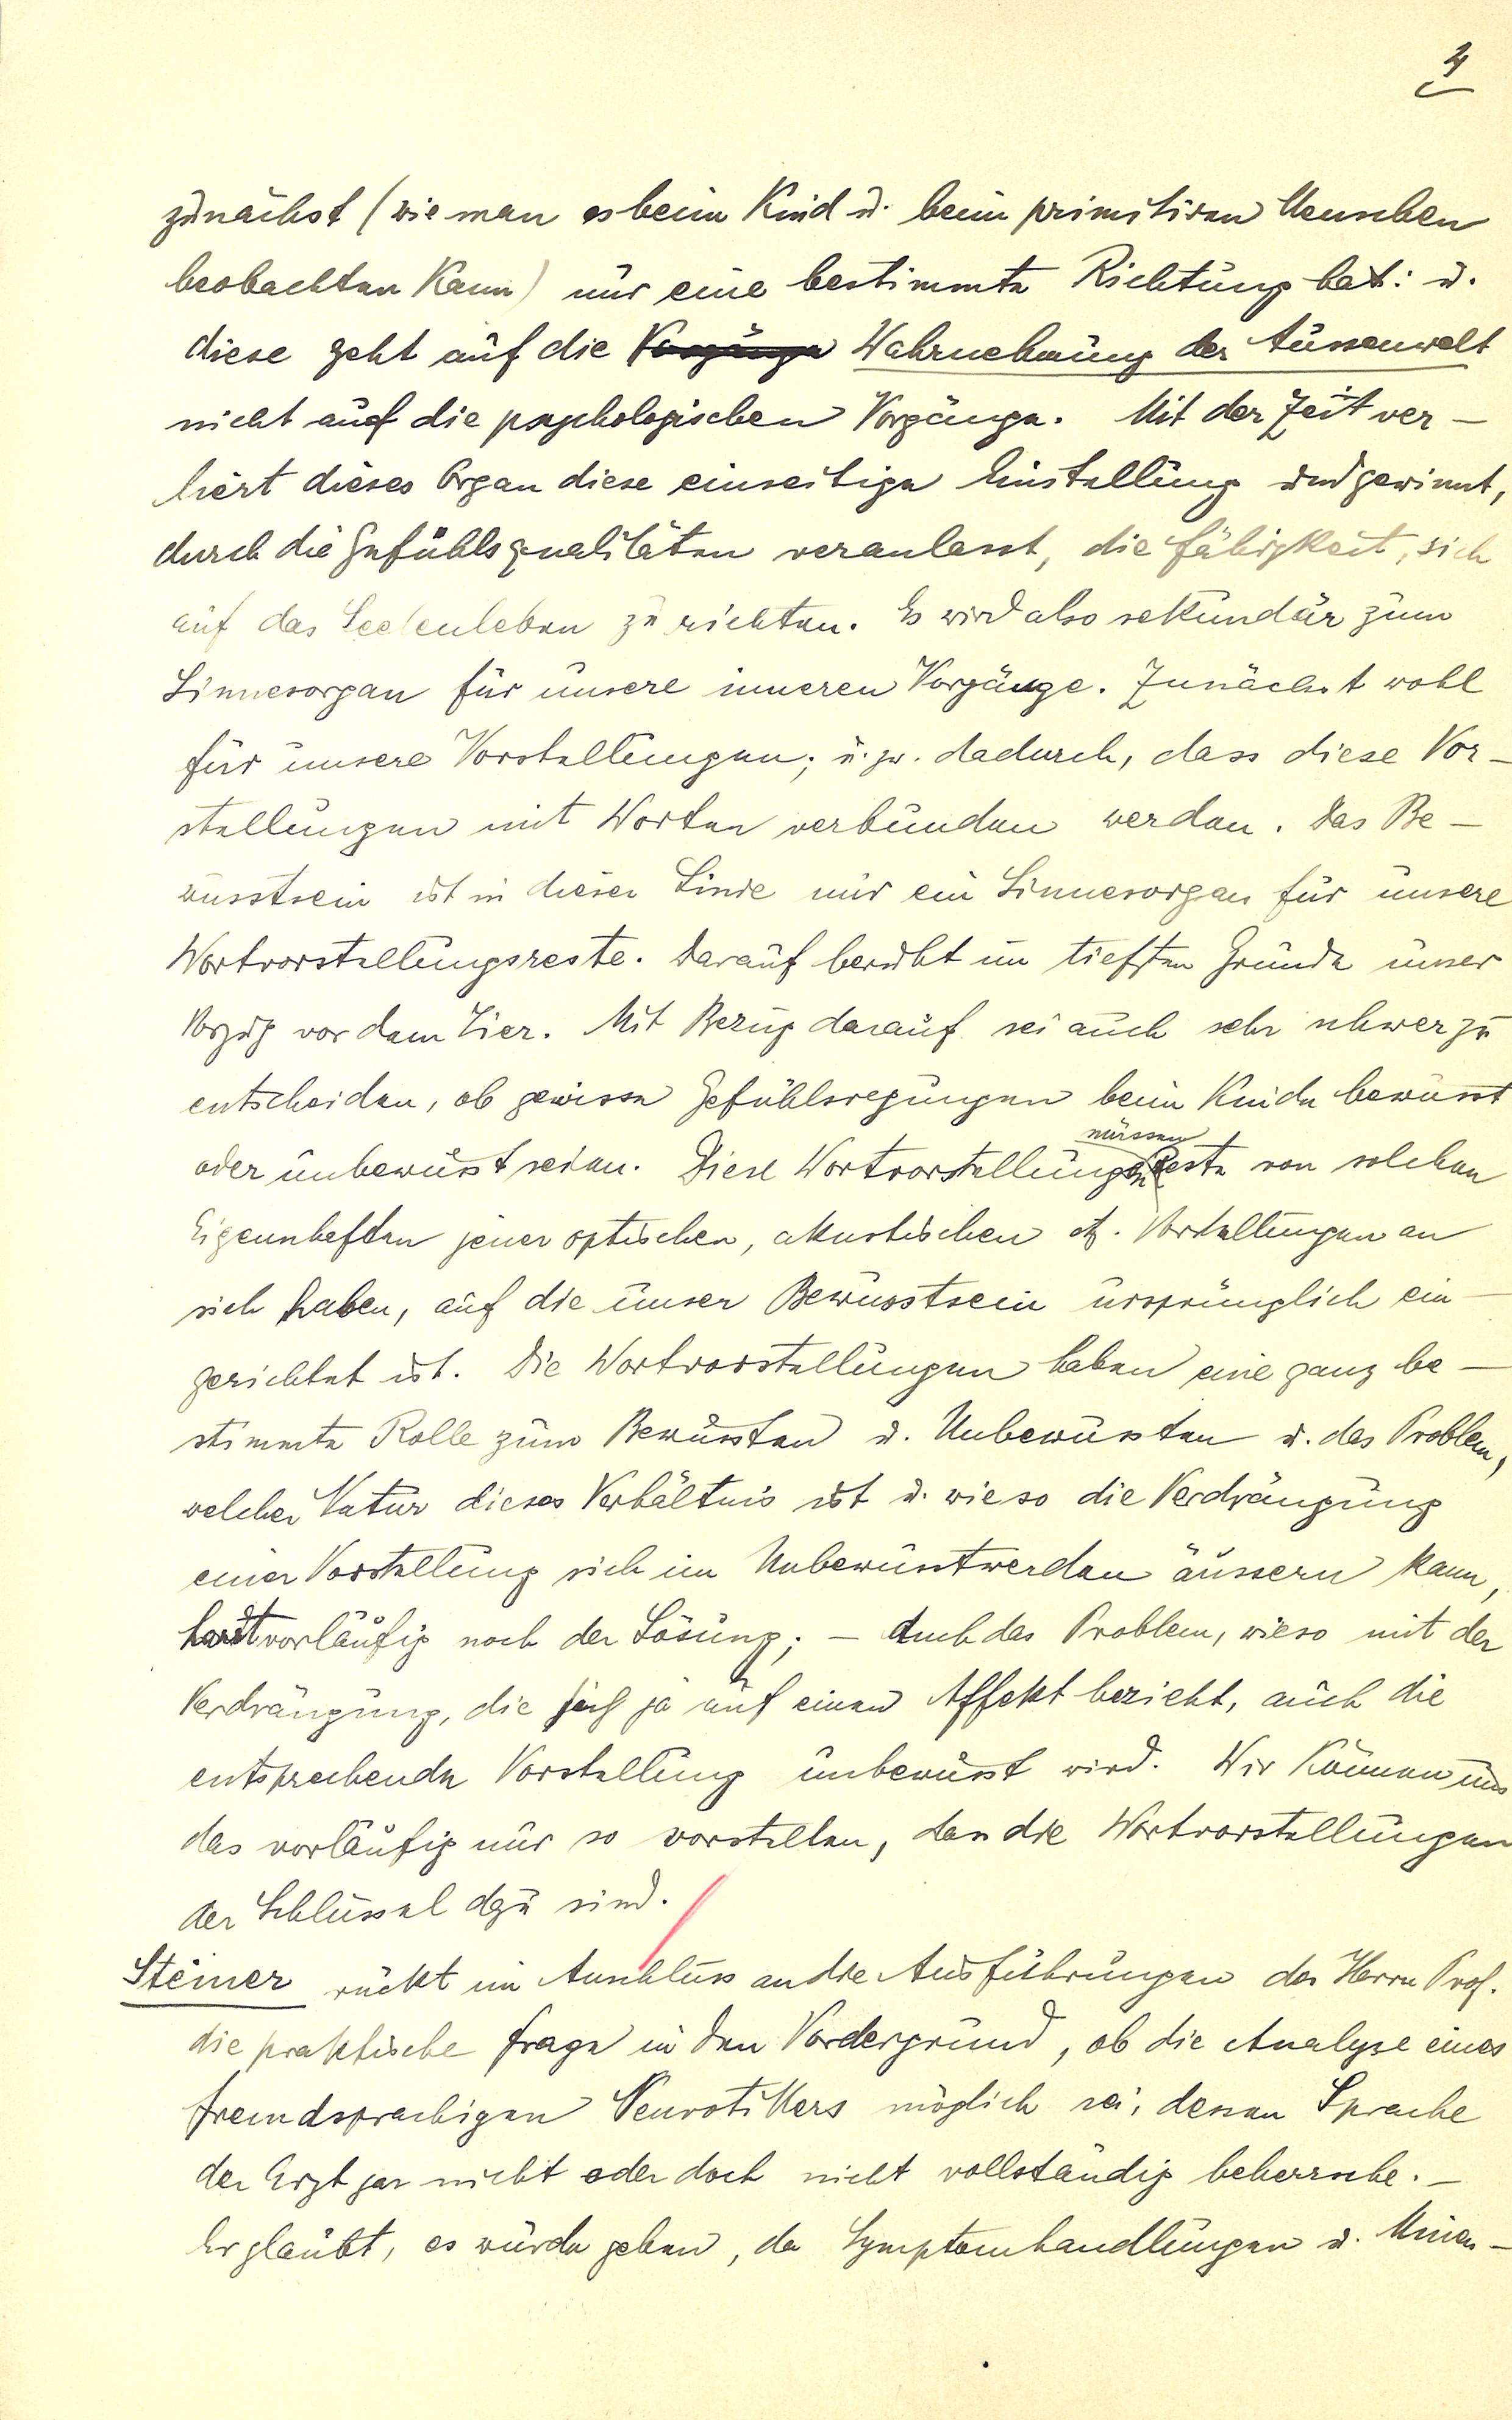 4
zunächst (wie man es beim Kind u. beim primitiven Menschen
beobachten kann) nur eine bestimmte Richtung hat: u.
diese geht auf die Vorgänge Wahrnehmung der Aussenwelt
nicht auf die psychologischen Vorgänge. Mit der Zeit ver-
liert dieses Organ diese einseitige Einstellung und gewinnt,
durch die Gefühlsqualitäten veranlasst, die Fähigkeit, sich
auf das Seelenleben zu richten. Es wird also sekundär zum
Sinnesorgan für unsere inneren Vorgänge. Zunächst wohl
für unsere Vorstellungen; u. zw. dadurch, dass diese Vor-
stellungen mit Worten verbunden werden. Das Be-
wusstsein ist in dieser Linie nur ein Sinnesorgan für unsere
Wortvorstellungsreste. Darauf beruht im tiefsten Grunde unser
Vorzug vor dem Tier. Mit Bezug darauf sei auch sehr schwer zu
entscheiden, ob gewisse Gefühlsregungen beim Kinde bewusst
müssen
oder unbewusst seien. Diese Wortvorstellungen Reste von solchen
Eigenheften jener optischen, akustischen etz. Vorstellungen an
sich haben, auf die unser Bewusstsein ursprünglich ein-
gerichtet ist. Die Wortvorstellungen haben eine ganz be-
stimmte Rolle zum Bewussten u. Unbewussten u. das Problem,
welcher Natur dieses Verhältnis ist u. wieso die Verdrängung
einer Vorstellung sich im Unbewusstwerden äussern kann,
harrt vorläufig noch der Lösung; – Auch das Problem, wieso mit der
Verdrängung, die sich ja auf einen Affekt bezieht, auch die
entsprechende Vorstellung unbewusst wird. Wir können uns
das vorläufig nur so vorstellen, dass die Wortvorstellungen
der Schlüssel dazu sind.
Steiner rückt im Anschluss an die Ausführungen des Herrn Prof.
die praktische Frage in den Vordergrund, ob die Analyse eines
fremdsprachigen Neurotikers möglich sei, dessen Sprache
der Arzt gar nicht oder doch nicht vollständig beherrsche. –
Er glaubt, es würde gehen, da Symptomhandlungen u. Minen-